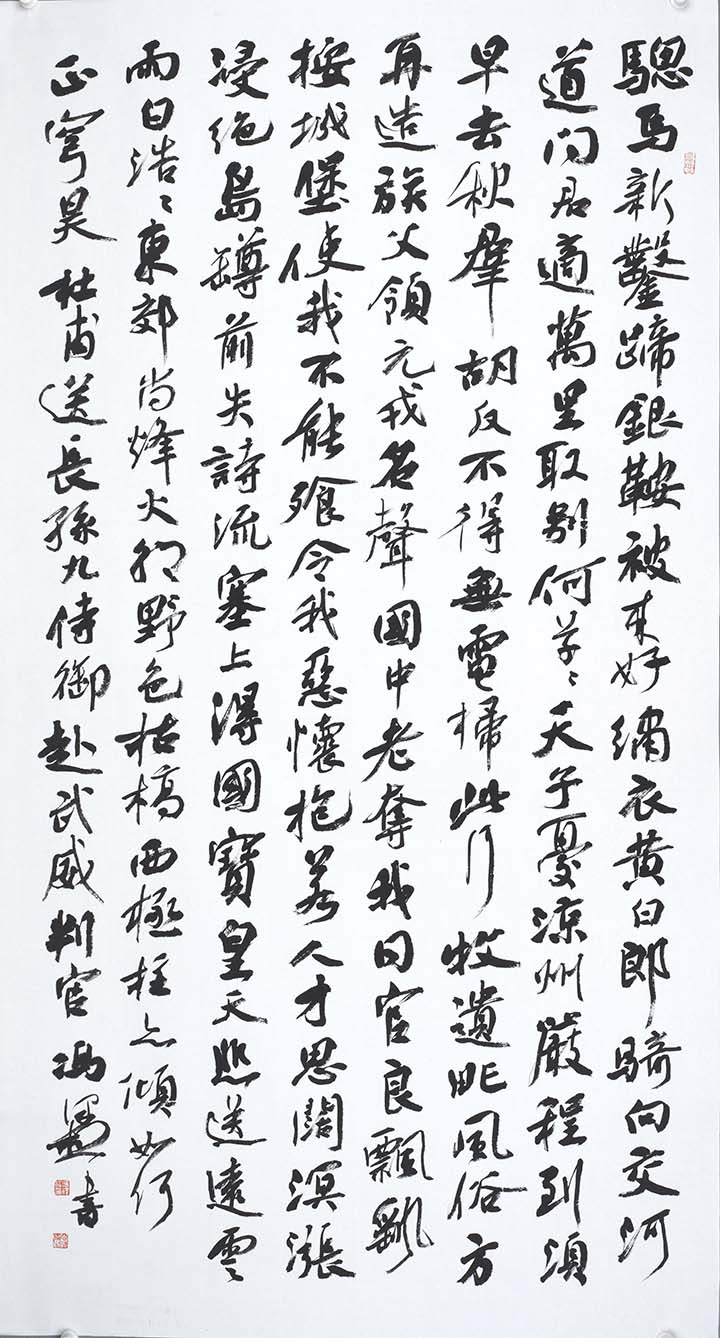 驄馬新鑿蹄銀鞍被來好繡衣黃白郎騎向交河
道問君適萬里取別何草〻天子憂涼州嚴程到須
早去秋羣胡反不得無電掃此行牧遺甿風俗方
再造族父領元戎名聲國中老奪我同官良飄颻
按城堡使我不能飱令我惡懷抱若人才思闊溟漲
浸絕島罇前失詩流塞上得國寶皇天悲送遠雲
雨白浩〻東郊尚烽火朝野色枯槁西極柱亦傾如何
正穹昊 杜甫送長孫九侍御赴武威判官 馮書